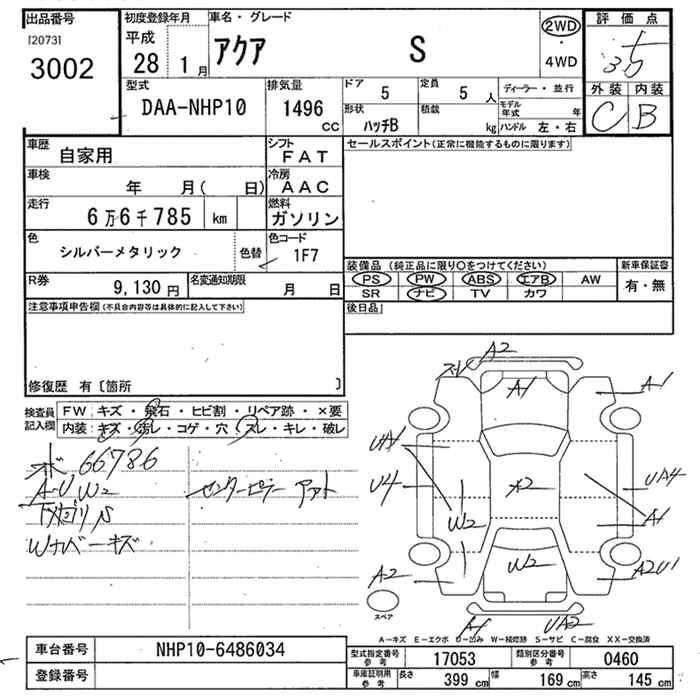 出品番号
[2073]
3002
初度登録年月
平成
28 1月
車名・グレード
アクア S
2WD
・
4WD
評価点
外装 内装
C B
型式
DAA-NHP10
排気量
1496
cc
ドア 5
定員 5人
形状 ハッチB
積載 kg
ディーラー・並行
モデル年式 年
ハンドル 左・右
車歴 自家用
シフト FAT
車検 年 月( 日)
冷房 AAC
走行 6万6千785 km
燃料 ガソリン
色 シルバーメタリック 色替
色コード 1F7
R券 9,130円
名変通知期限 月 日
セールスポイント(正常に機能するものに限ります)
装備品(純正品に限り○をつけてください) 新車保証書
PS PW ABS エアB AW 有・無
SR ナビ TV カワ
後日品
注意事項申告欄(不具合内容等は具体的に記入して下さい)
修復歴 有〔箇所 〕
検査員記入欄
FW: キズ・飛石・ヒビ割・リペア跡・×要
内装: キズ・汚レ・コゲ・穴・スレ・キレ・破レ
ボ 66786
A-U W2
センターピラー
下メクリS
Wカバーキズ
A2
A1
A1
UA1
U4
W2
UA4
A1
W2
A2
A2U1
A1
UA2
スペア
A-キズ E-エクボ U-凹み W-補修跡 S-サビ C-腐食 XX-交換済
車台番号 NHP10-6486034
登録番号
型式指定番号 参考 17053
類別区分番号 参考 0460
車庫証明用 参考 長さ 399cm 幅 169cm 高さ 145cm